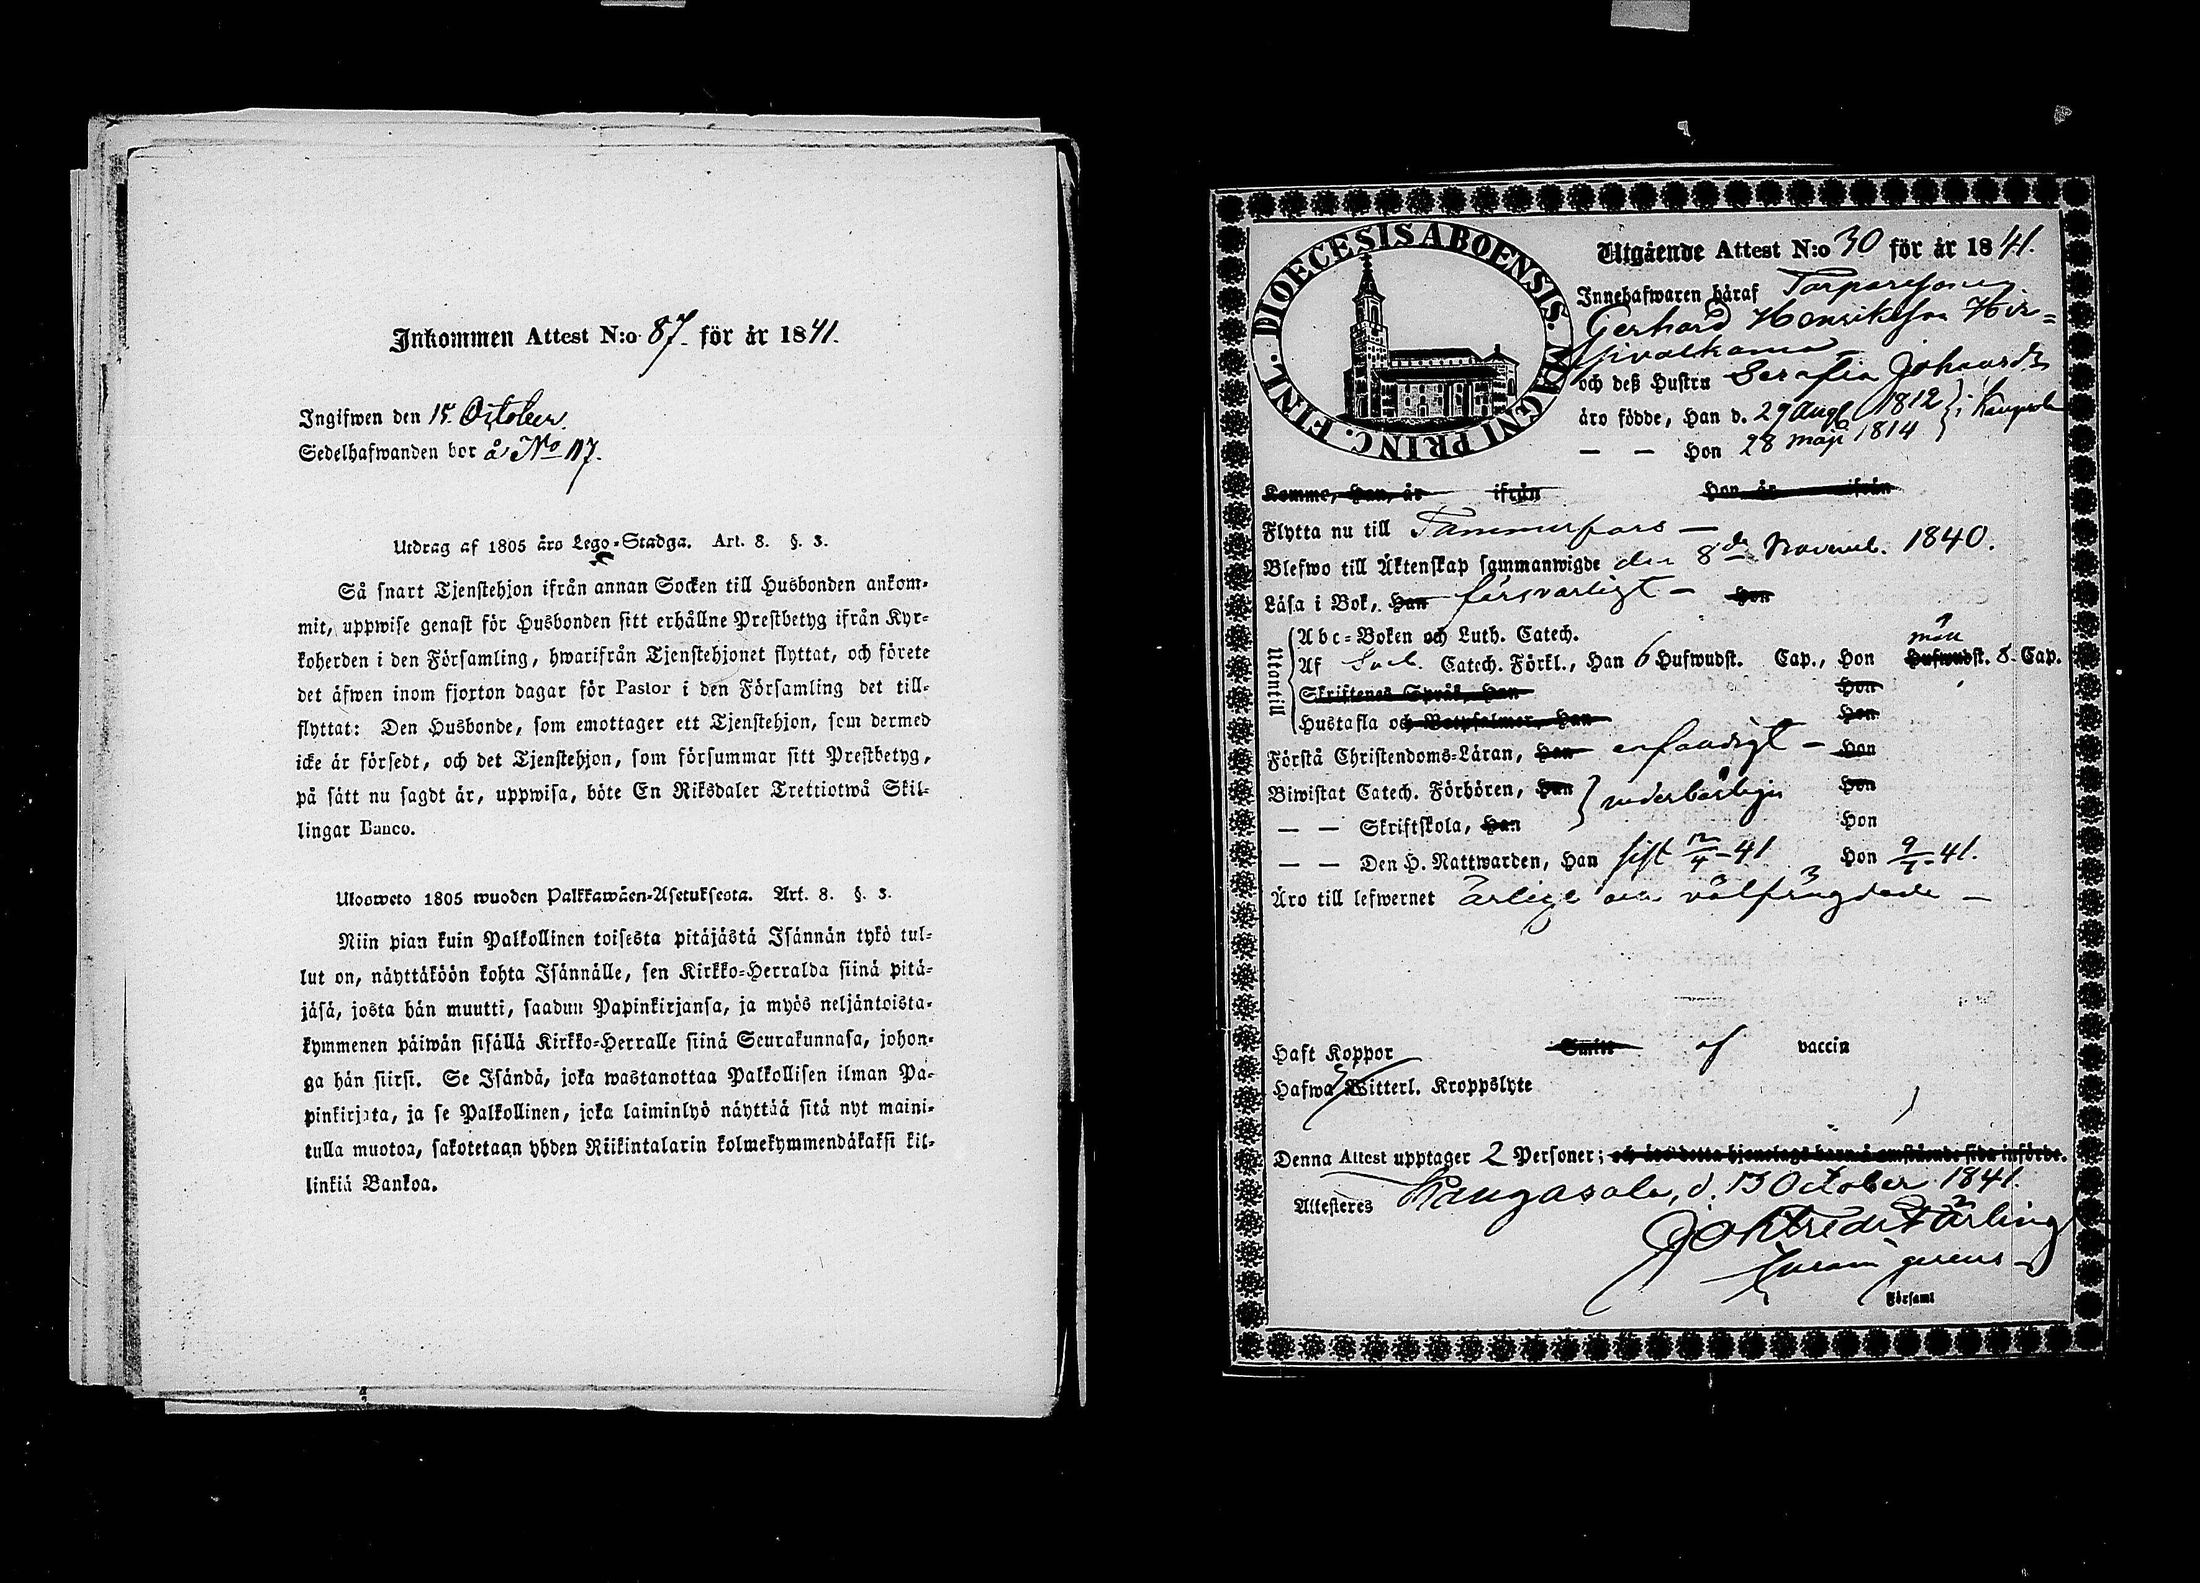 Inkommen Attest N:o 87. för år 1841.
Ingifwen den 15. October.
Sedelhafwanden bor å No 117.
Utdrag af 1805 års Lego-Stadga. Art. 8. §. 3.
Så snart Tjenstehjon ifrån annan Socken till Husbonden ankom-
mit, uppwise genast för Husbonden sitt erhållne Prestbetyg ifrån Kyr-
koherden i den Församling, hwarifrån Tjenstehjonet flyttat, och förete
det äfwen inom fjorton dagar för Pastor i den Församling det till-
flyttat: Den Husbonde, som emottager ett Tjenstehjon, som dermed
icke är försedt, och det Tjenstehjon, som försummar sitt Prestbetyg,
på sätt nu sagdt är, uppwisa, böte En Riksdaler Trettiotwå Skil-
lingar Banco.
Ulosweto 1805 wuoden Palkkawäen-Asetuksesta. Art. 8. §. 3.
Niin pian kuin Palkollinen toisesta pitäjästä Isännän tykö tul-
lut on, näyttäköön kohta Isännälle, sen Kirkko-Herralda siinä pitä-
jäsä, josta hän muutti, saadun Papinkirjansa, ja myös neljäntoista-
kymmenen päiwän sisällä Kirkko-Herralle siinä Seurakunnasa, johon-
ga hän siirsi. Se Isändä, joka wastanottaa Palkollisen ilman Pa-
pinkirjata, ja se Palkollinen, joka laiminlyö näyttää sitä nyt maini-
tulla muotoa, sakotetaan yhden Riikintalarin kolmekymmendäkaksi kil-
linkiä Bankoa.
DIOECESIS ABOENSIS. MAGNI PRINC. FINL.
Utgående Attest N:o 30 för år 1841.
Innehafwaren häraf Torparesonen
Gerhard Henriksson Hir-
sivalkama
och deß Hustru Serafia Johansdr
äro födde, Han d. 29 Aug 1812 } i Kangasala
— — Hon 28 Maji 1814
Komme, Han, år ifrån Hon, år ifrån
Flytta nu till Tammerfors —
Blefwo till Äktenskap sammanwigde den 8de Novemb. 1840.
Läsa i Bok, Han försvarligt — Hon
Utontill
Abc-Boken och Luth. Catech.
Af Catech. Förkl., Han 6 Hufwudst. Cap., Hon Hufwudst. 8. Cap.
Skriftenes Språk, Han Hon
Hustafla och Botpsalmer, Han Hon
Förstå Christendoms-Läran, Han enfaldigt — Hon
Biwistat Catech. Förhören, Han } vederbörligen Hon
— — Skriftskola, Han Hon
— — Den H. Nattwarden, Han sist 12/4 - 41 Hon 9/7 - 41.
Äro till lefwernet ärlige och välfrägdade —
Haft Koppor Smitt af vaccin
Hafwa Witterl. Kroppslyte
Denna Attest upptager 2 Personer; och äro detta hjonelags barn å omstående sida införde.
Attesteres Kangasala, d. 13 October 1841.
Församl